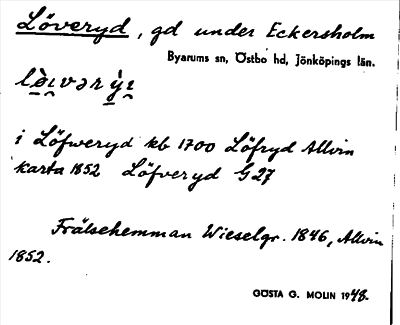 Löveryd, gd under Eckersholm
Byarums sn, Östbo hd, Jönköpings län.
i Löfweryd kb 1700 Löfryd Allvin
karta 1852 Löfveryd G 27
Frälsehemman Wieselgr. 1846, Allvin
1852.
GÖSTA G. MOLIN 1948.